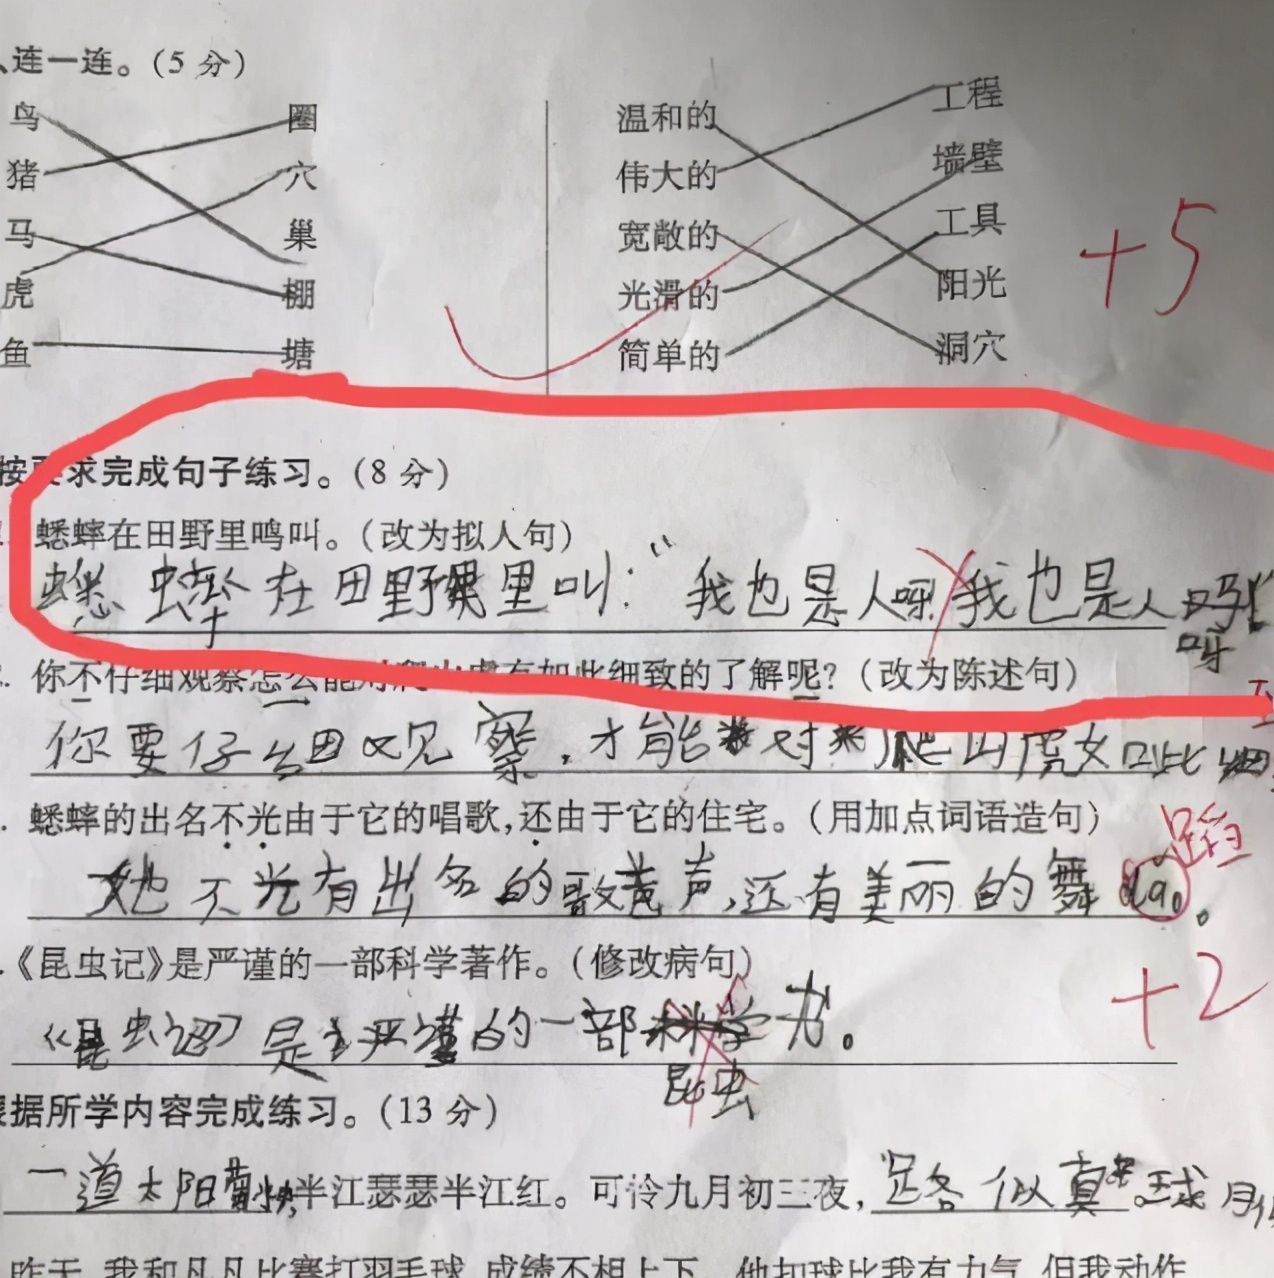 、连一连。(5 分)
鸟 圈 温和的 工程
猪 穴 伟大的 墙壁
马 巢 宽敞的 工具
虎 棚 光滑的 阳光
鱼 塘 简单的 洞穴
+5
按要求完成句子练习。(8 分)
蟋蟀在田野里鸣叫。(改为拟人句)
蟋蟀在田野里叫:“我也是人呀我也是人
呀
. 你不仔细观察怎么能对爬山虎有如此细致的了解呢?(改为陈述句)
你要仔细观察,才能对爬山虎如此细
. 蟋蟀的出名不光由于它的唱歌,还由于它的住宅。(用加点词语造句)
她不光有出名的歌声,还有美丽的舞da。
蹈
.《昆虫记》是严谨的一部科学著作。(修改病句)
+2
《昆虫记》是严谨的一部科学
昆虫
根据所学内容完成练习。(13 分)
一道太阳 半江瑟瑟半江红。可怜九月初三夜,露似真珠月
昨天,我和凡凡比赛打羽毛球,成绩不相上下。他扣球比我有力气,但我动作